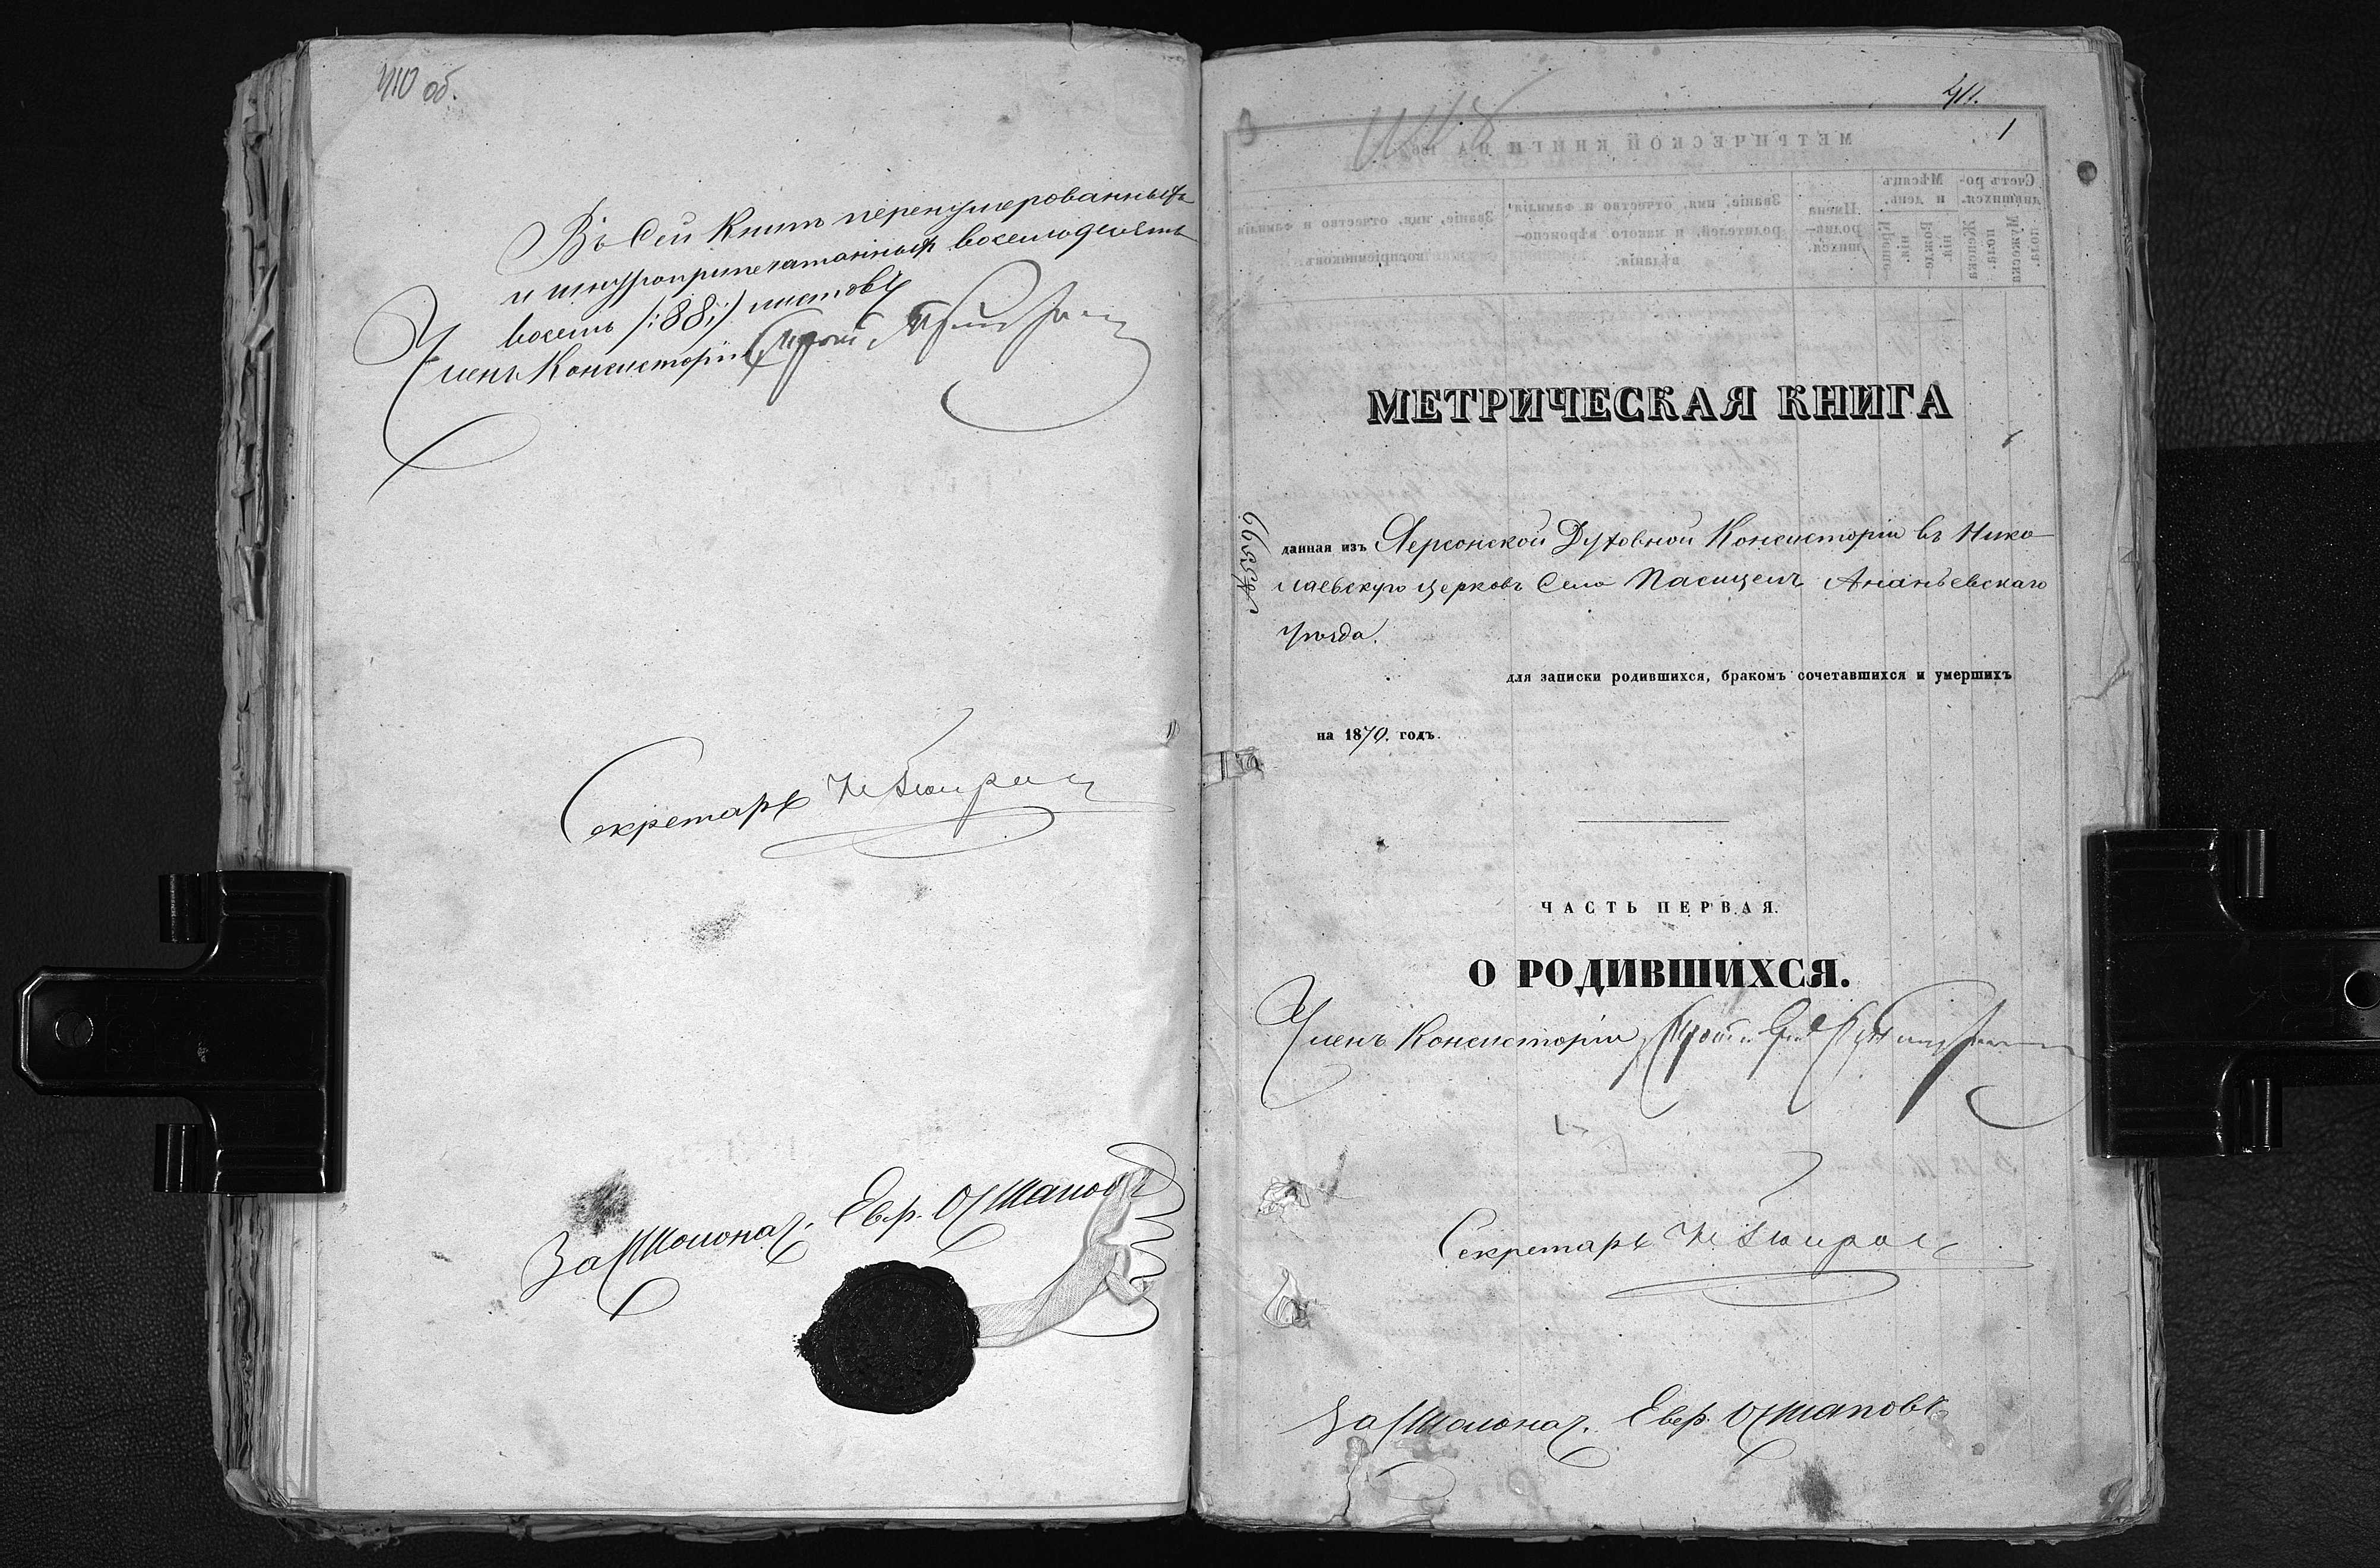 410 об.
Въ сей Книгѣ перенумерованныхъ
и шнуроприпечатанныхъ восемьдесятъ
восемь /:88:/ листовъ
Членъ Консисторіи Прот.
Секретарь
За Столонач. Евр. Остаповъ
411.
1
МЕТРИЧЕСКАЯ КНИГА
данная изъ Херсонской Духовной Консисторіи въ Нико-
лаевскую церковь Села Пасицелъ Ананьевскаго
уѣзда.
для записки родившихся, бракомъ сочетавшихся и умершихъ
на 1870. годъ.
ЧАСТЬ ПЕРВАЯ.
О РОДИВШИХСЯ.
Членъ Консисторіи, Прот.
Секретарь
За Столонач. Евр. Остаповъ